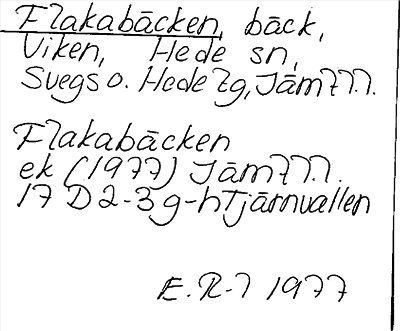 Flakabäcken, bäck,
Viken, Hede sn,
Svegs o. Hede tg, Jämtl.
Flakabäcken
ek (1977) Jämtl.
17 D 2-3 g-h Tjärnvallen
E.R-l 1977